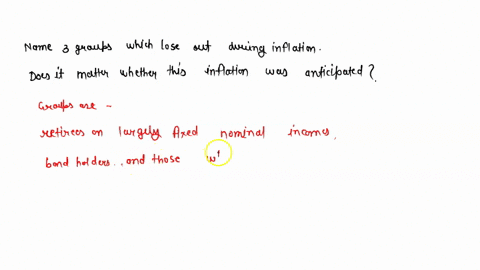 Name 3 groups which lose out during inflation.
Does it matter whether this inflation was anticipated?
Groups are -
retirees on largely fixed nominal incomes.
bond holders.. and those